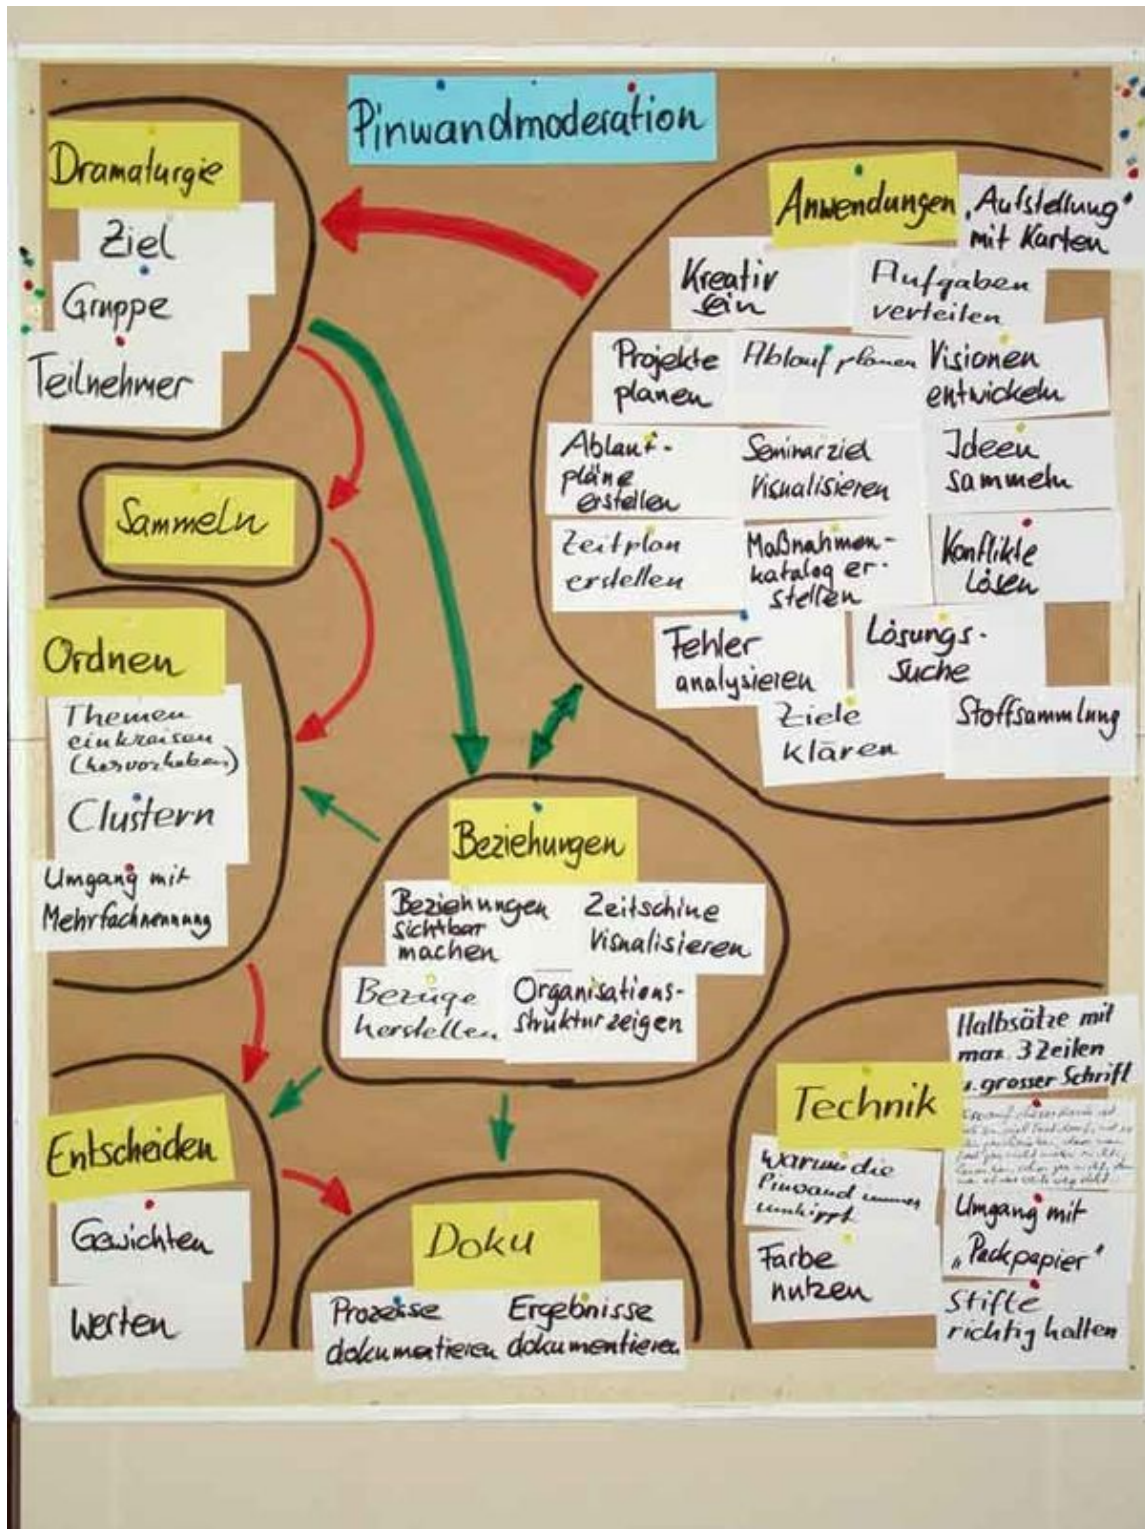 Pinwandmoderation
Dramaturgie
Ziel
Gruppe
Teilnehmer
Sammeln
Ordnen
Themen
einkreisen
(hervorheben)
Clustern
Umgang mit
Mehrfachnennung
Entscheiden
Gewichten
Werten
Anwendungen
"Aufstellung"
mit Karten
Kreativ
sein
Aufgaben
verteilen
Projekte
planen
Ablauf planen
Visionen
entwickeln
Ablauf-
pläne
erstellen
Seminarziel
visualisieren
Ideen
sammeln
Zeitplan
erstellen
Maßnahmen-
katalog er-
stellen
Konflikte
lösen
Fehler
analysieren
Lösungs-
suche
Ziele
klären
Stoffsammlung
Beziehungen
Beziehungen
sichtbar
machen
Zeitschine
Visualisieren
Bezüge
herstellen
Organisations-
struktur zeigen
Doku
Prozesse
dokumentieren
Ergebnisse
dokumentieren
Technik
Halbsätze mit
max. 3 Zeilen
u. grosser Schrift
Warum die
Pinwand immer
umkippt
Umgang mit
"Packpapier"
Farbe
nutzen
Stifte
richtig halten